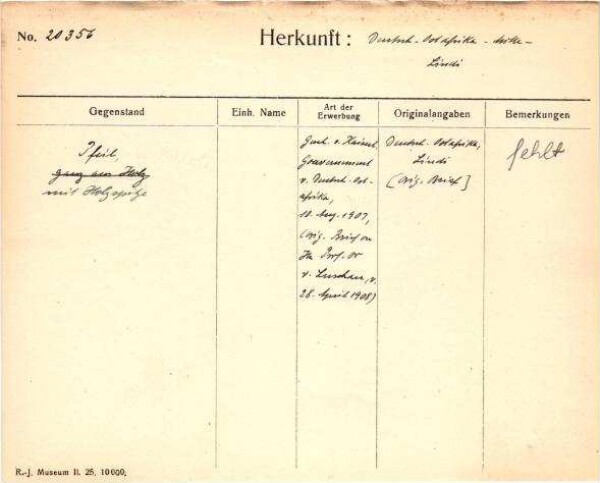 No. 20356
Herkunft: Deutsch-Ostafrika -
Lindi
Gegenstand
Einh. Name
Art der
Erwerbung
Originalangaben
Bemerkungen
Pfeil,
ganz aus Holz
mit Holzspitze
Gesch. v. Kaiserl.
Gouvernement
v. Deutsch-Ost-
afrika,
10. Aug. 1907,
(Orig. Brief an
Hn Prof. Dr
v. Luschan, v.
28. April 1908)
Deutsch-Ostafrika,
Lindi
[Orig. Brief]
fehlt
R.-J. Museum II. 25. 10000.